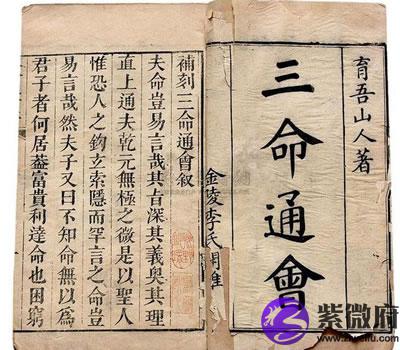 育吾山人著
三命通會
金陵李氏
補刻三命通會敘
夫命豈易言哉其旨深其義奧其理
直上通夫乾元無極之微是以聖人
惟恐人之鈎玄索隱而罕言之命豈
易言哉然夫子又曰不知命無以爲
君子者何居葢富貴利達命也困窮
紫微府
www.ziweifu.com